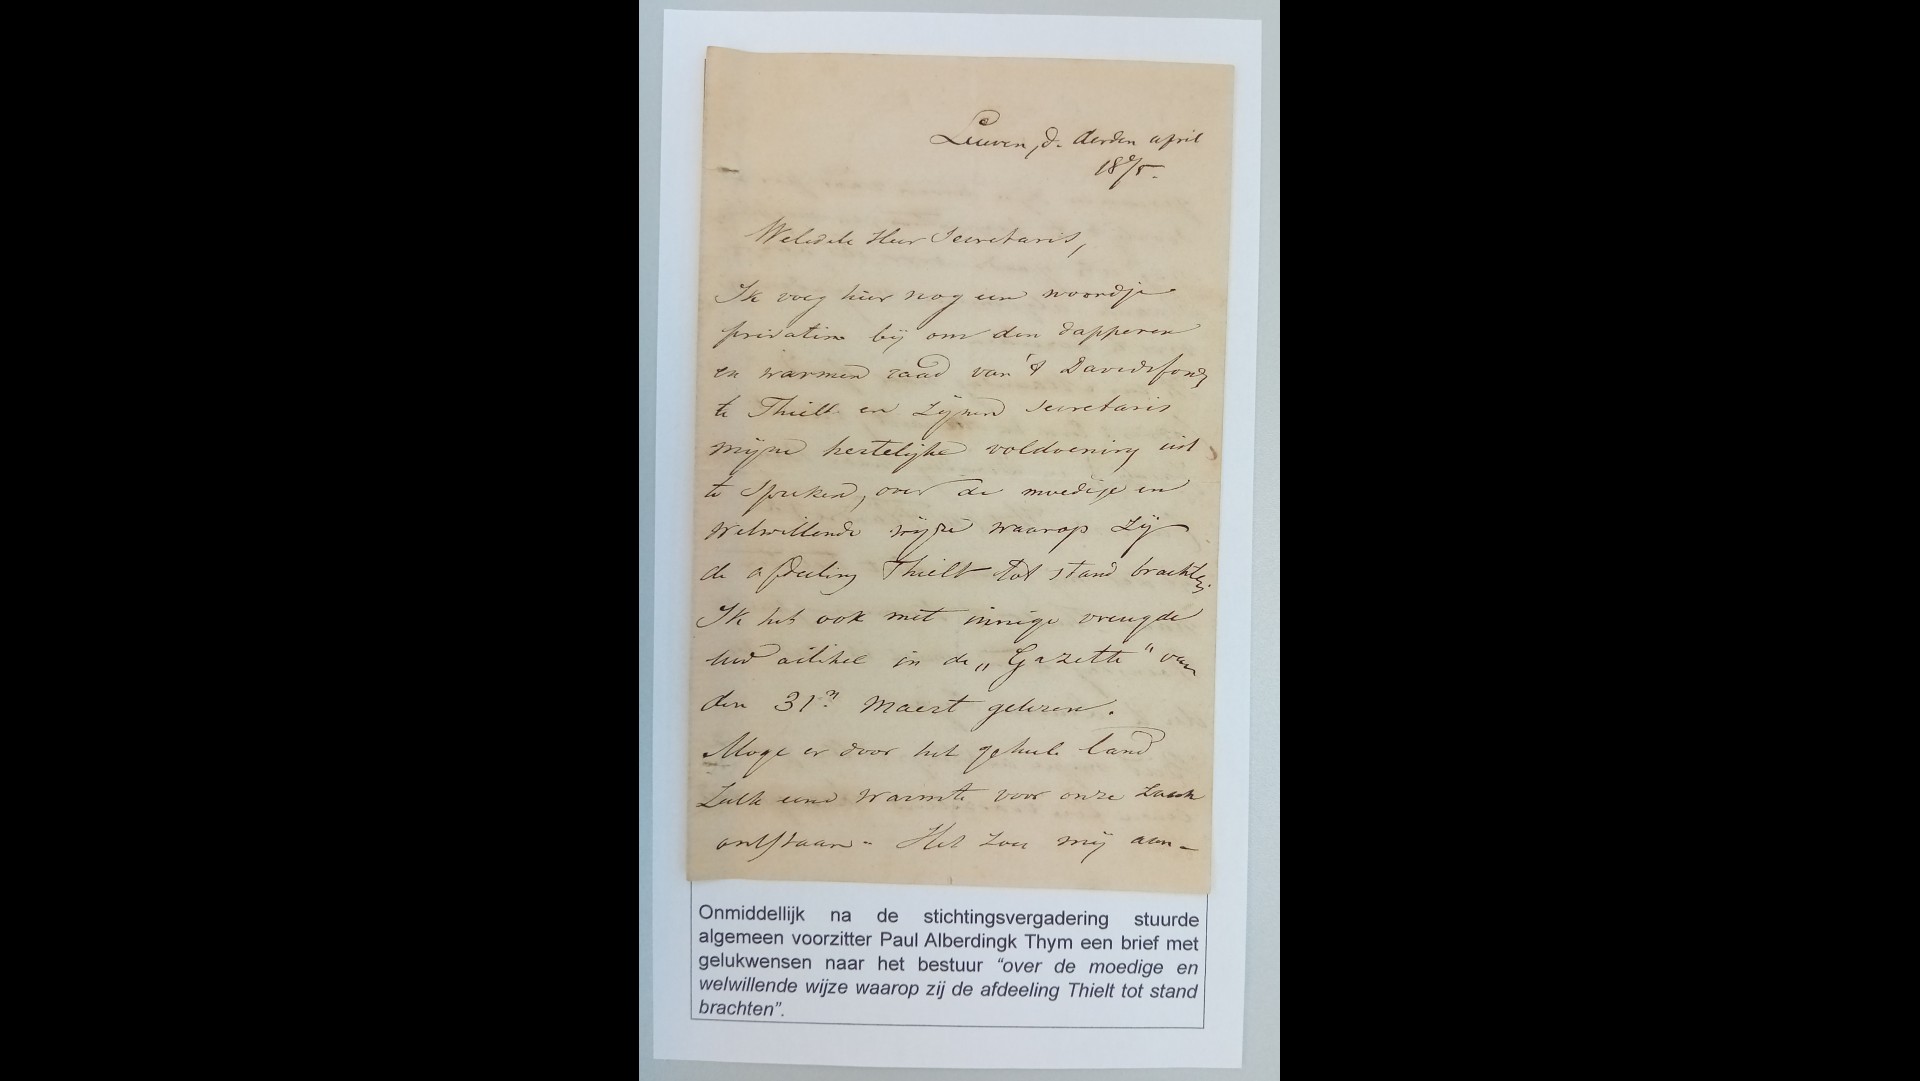 Leuven, d. derden april
1875.
Weledele Heer Secretaris,
Ik voeg hier nog een woordje
privatim bij om den dapperen
en warmen raad van 't Davidsfonds
te Thielt en zijnen secretaris
mijne hertelijke voldoening uit
te spreken, over de moedige en
welwillende wijze waarop zij
de afdeeling Thielt tot stand brachten.
Ik heb ook met innige vreugde
uw artikel in de „Gazette" van
den 31n Maert gelezen.
Moge er door het geheele land
zulk eene warmte voor onze zaak
ontstaan. Het zou mij aan-
Onmiddellijk na de stichtingsvergadering stuurde
algemeen voorzitter Paul Alberdingk Thym een brief met
gelukwensen naar het bestuur “over de moedige en
welwillende wijze waarop zij de afdeeling Thielt tot stand
brachten”.